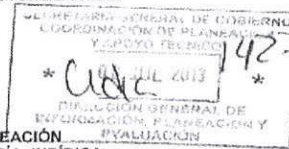 SECRETARÍA GENERAL DE GOBIERNO
COORDINACIÓN DE PLANEACIÓN
Y APOYO TECNICO
142-
* JUL 2013 *
DIRECCIÓN GENERAL DE
INFORMACIÓN, PLANEACIÓN Y
EVALUACIÓN
EACIÓN